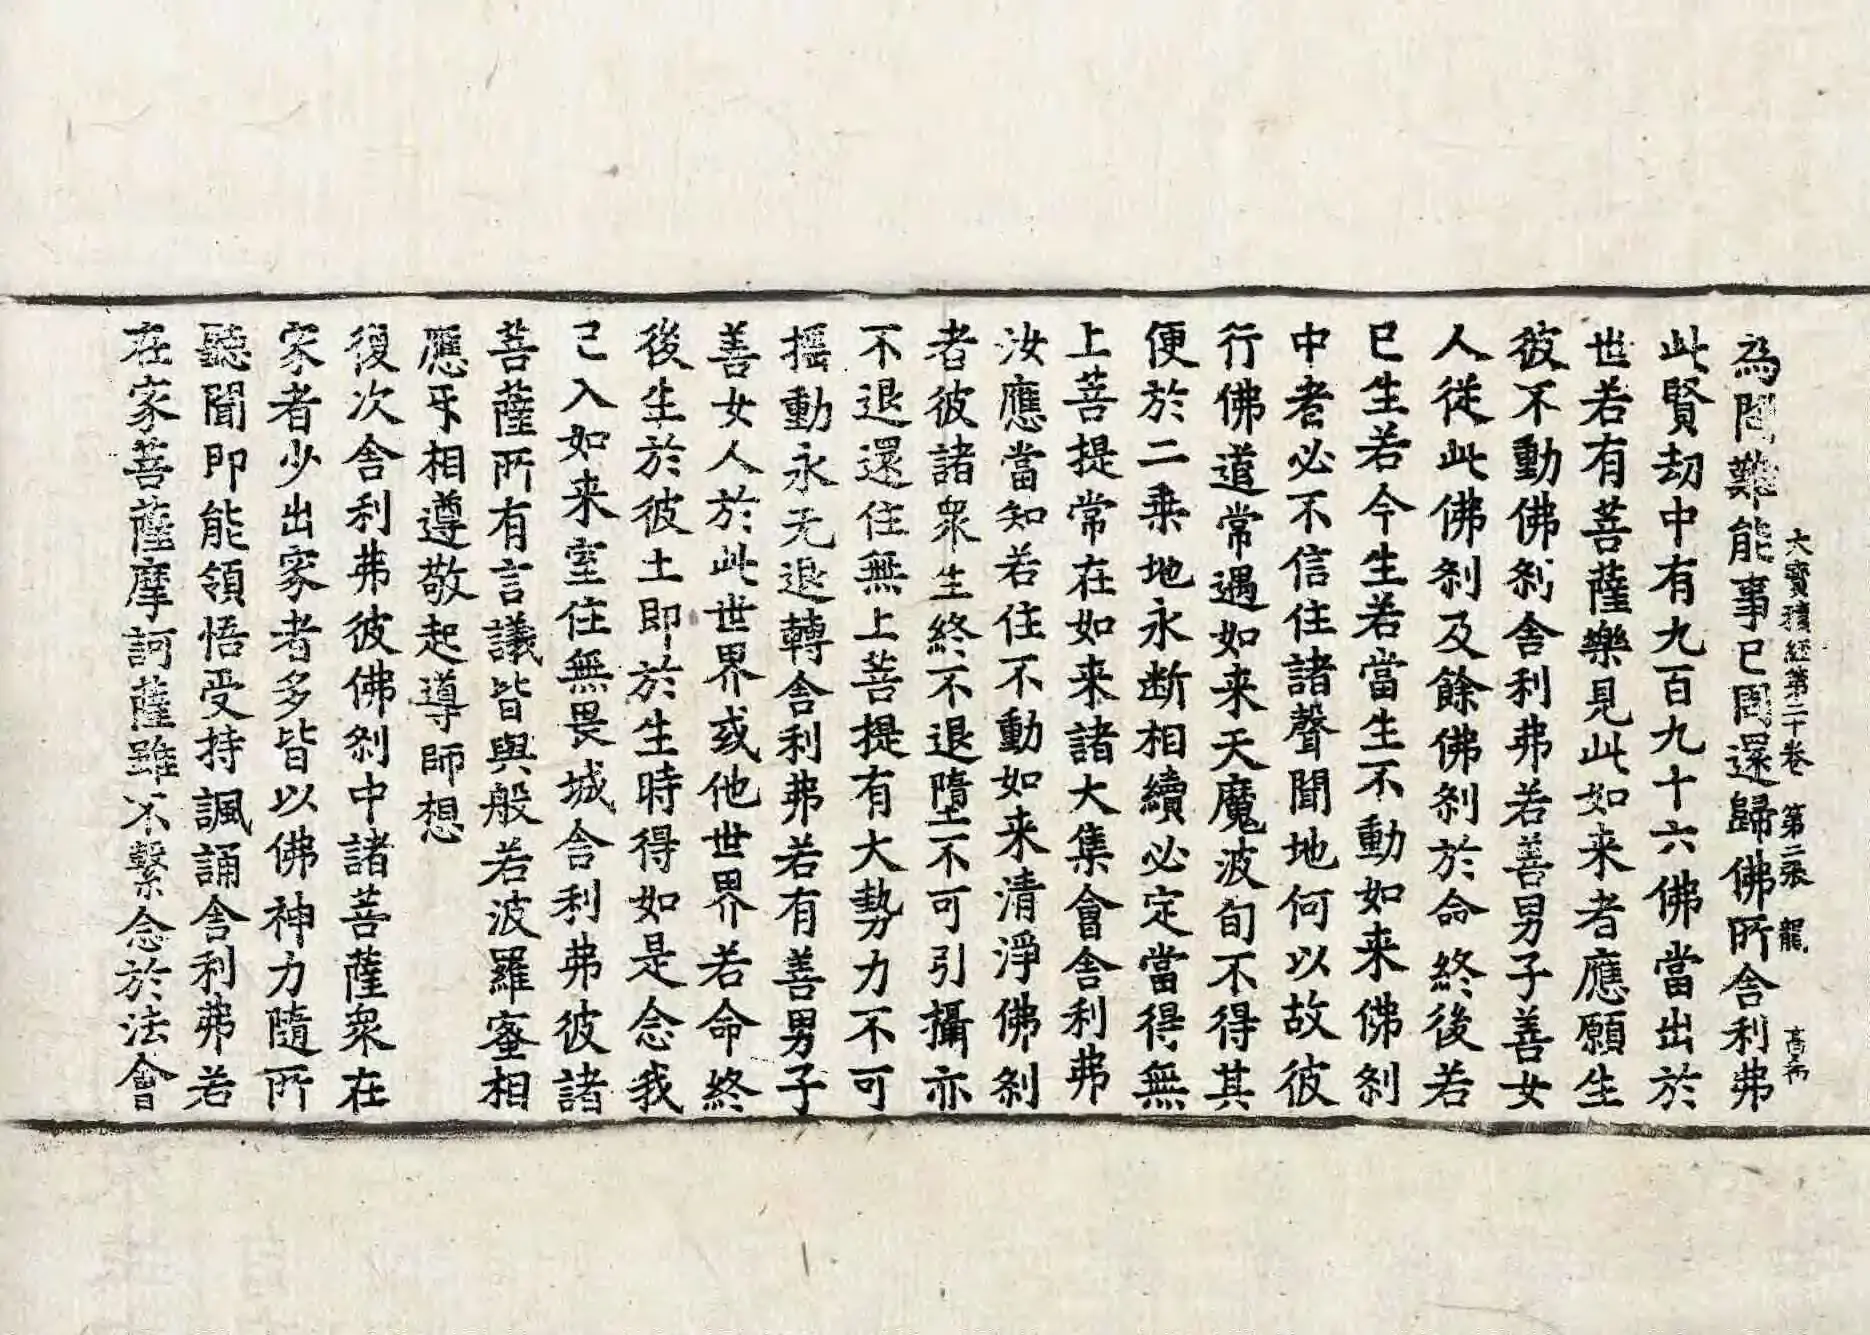 為開難能事已周還歸佛所舍利弗
大寶積經第二十卷 第二張 龍
此賢劫中有九百九十六佛當出於
世若有菩薩樂見此如来者應願生
彼不動佛刹舍利弗若善男子善女
人從此佛刹及餘佛刹於命終後若
已生若今生若當生不動如来佛刹
中者必不信住諸聲聞地何以故彼
行佛道常遇如来天魔波旬不得其
便於二乗地永断相續必定當得無
上菩提常在如来諸大集會舍利弗
汝應當知若住不動如来清淨佛刹
者彼諸衆生終不退墮不可引攝亦
不退還住無上菩提有大勢力不可
揺動永无退轉舍利弗若有善男子
善女人於此世界或他世界若命終
後生於彼土即於生時得如是念我
已入如来室住無畏城舍利弗彼諸
菩薩所有言議皆與般若波羅蜜相
應牙相遵敬起導師想
復次舍利弗彼佛刹中諸菩薩衆在
家者少出家者多皆以佛神力隨所
聽聞即能領悟受持諷誦舍利弗若
在家菩薩摩訶薩雖不繫念於法會